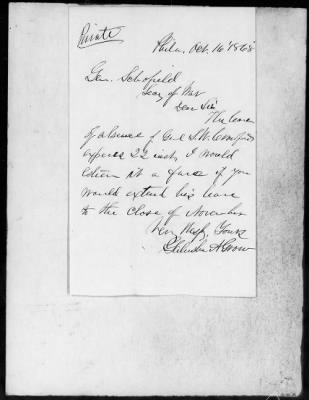 Private
Phila. Oct. 16 1868
Gen. Schofield
Secy of War
Dear Sir
The leave
of absence of Genl S. W. Crawford
expires 22 inst. I would
esteem it a favor if you
would extend his leave
to the close of November
Very Respy. Yours
Galusha A Grow